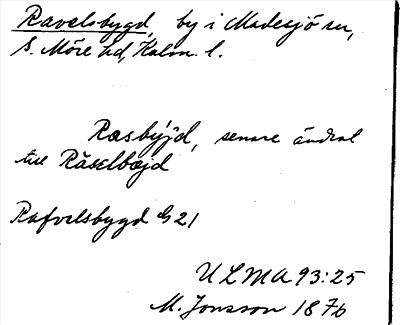 Ravelsbygd, by i Madesjö sn,
S. Möre hd, Kalm. l.
Rasbýjd, senare ändrat
till Räselbojd
Rafvelsbygd G 21
ULMA 93:25
M. Jonsson 1876